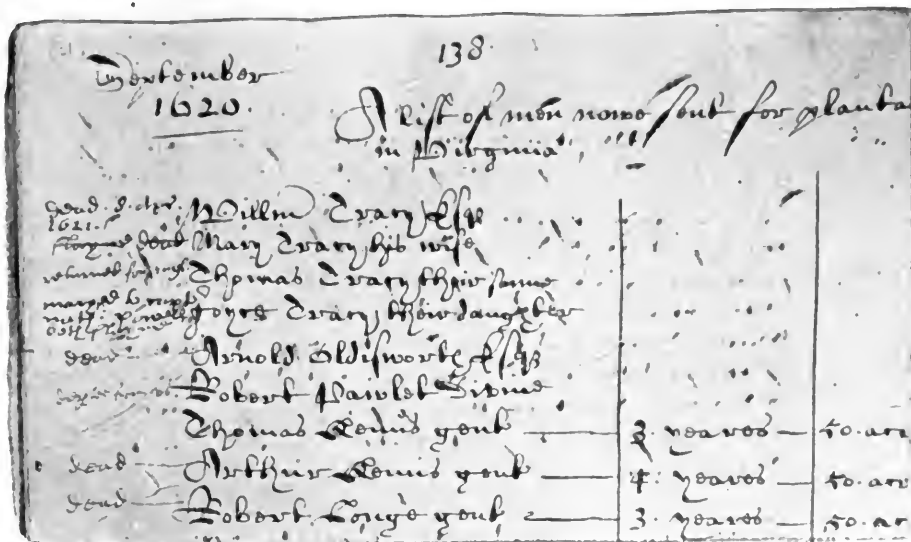 138.
September
1620.
A list of men nowe sent for planta
in Virginia
dead 1621. Willm Tracy Esqr
dead Mary Tracy his wife
returned Thomas Tracy their sonne
maryed Joyce Tracy their daughter
dead Arnold Oldisworth Esqr
Robert Pawlet Divine
Thomas Kemis gent 3. yeares 50. acr
dead Arthur Kemis gent 4. yeares 50. acr
dead Robert Longe gent 3. yeares 50. ac